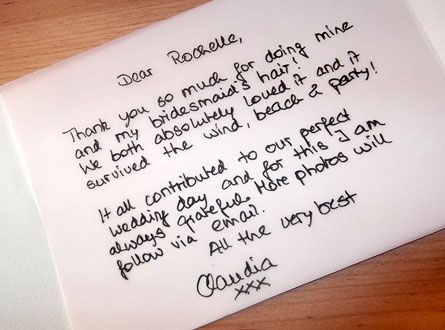 Dear Rochelle,
Thank you so much for doing mine
and my bridesmaid's hair!
We both absolutely loved it and it
survived the wind, beach & party!
It all contributed to our perfect
wedding day and for this I am
always grateful. More photos will
follow via email.
All the very best
Claudia
xxx